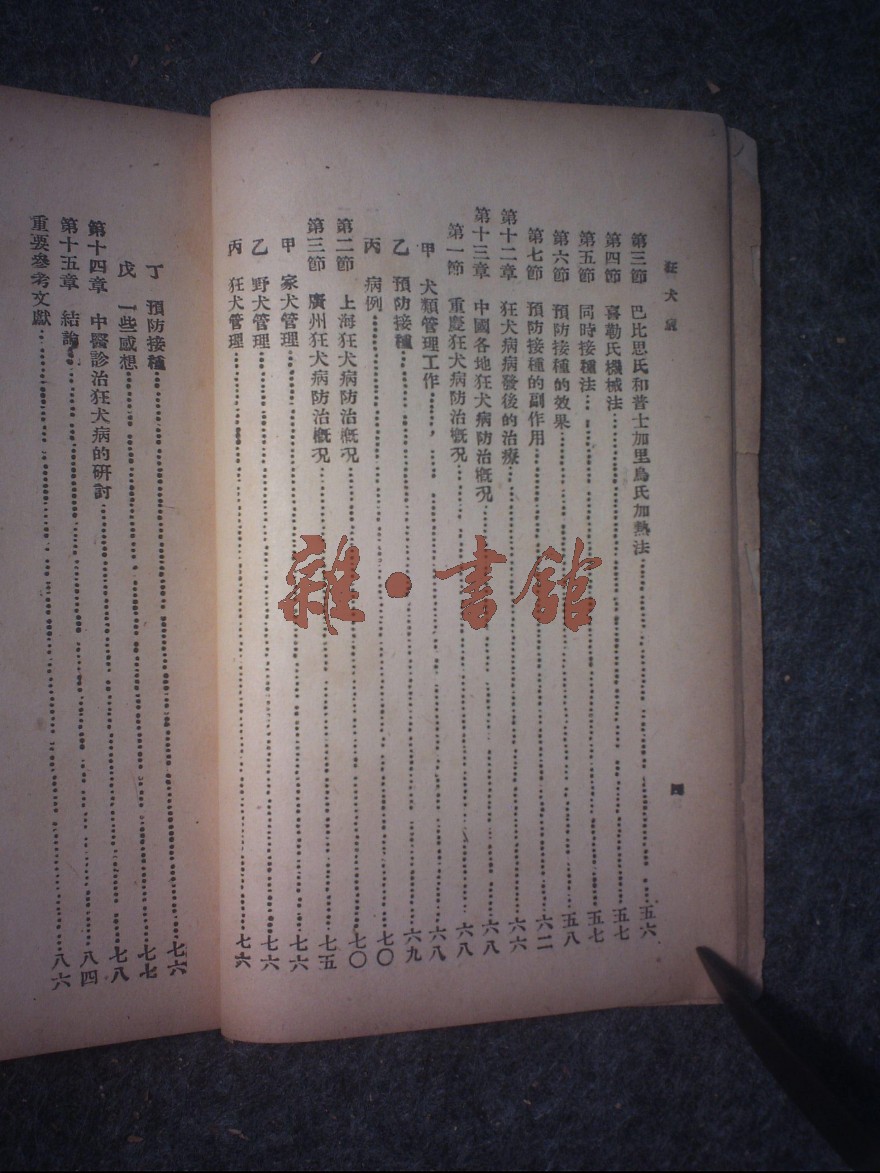 狂犬病
四
第三節 巴比思氏和普士加里烏氏加熱法……五六
第四節 喜勒氏機械法……五七
第五節 同時接種法……五七
第六節 預防接種的效果……五八
第七節 預防接種的副作用……六二
第十二章 狂犬病病發後的治療……六六
第十三章 中國各地狂犬病防治概況……六八
第一節 重慶狂犬病防治概况……六八
甲 犬類管理工作……六八
乙 預防接種……六九
丙 病例……七〇
第二節 上海狂犬病防治概况……七〇
第三節 廣州狂犬病防治概况……七五
甲 家犬管理……七六
乙 野犬管理……七六
丙 狂犬管理……七六
丁 預防接種……七六
戊 一些感想……七七
第十四章 中醫診治狂犬病的研討……七八
第十五章 結論……八四
重要參考文獻……八六
雜·書館